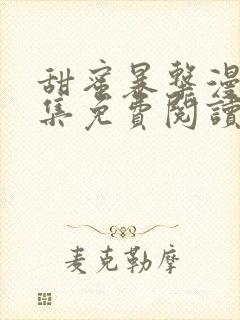 甜蜜暴擊漫
集免費閱讀
麦克勒摩